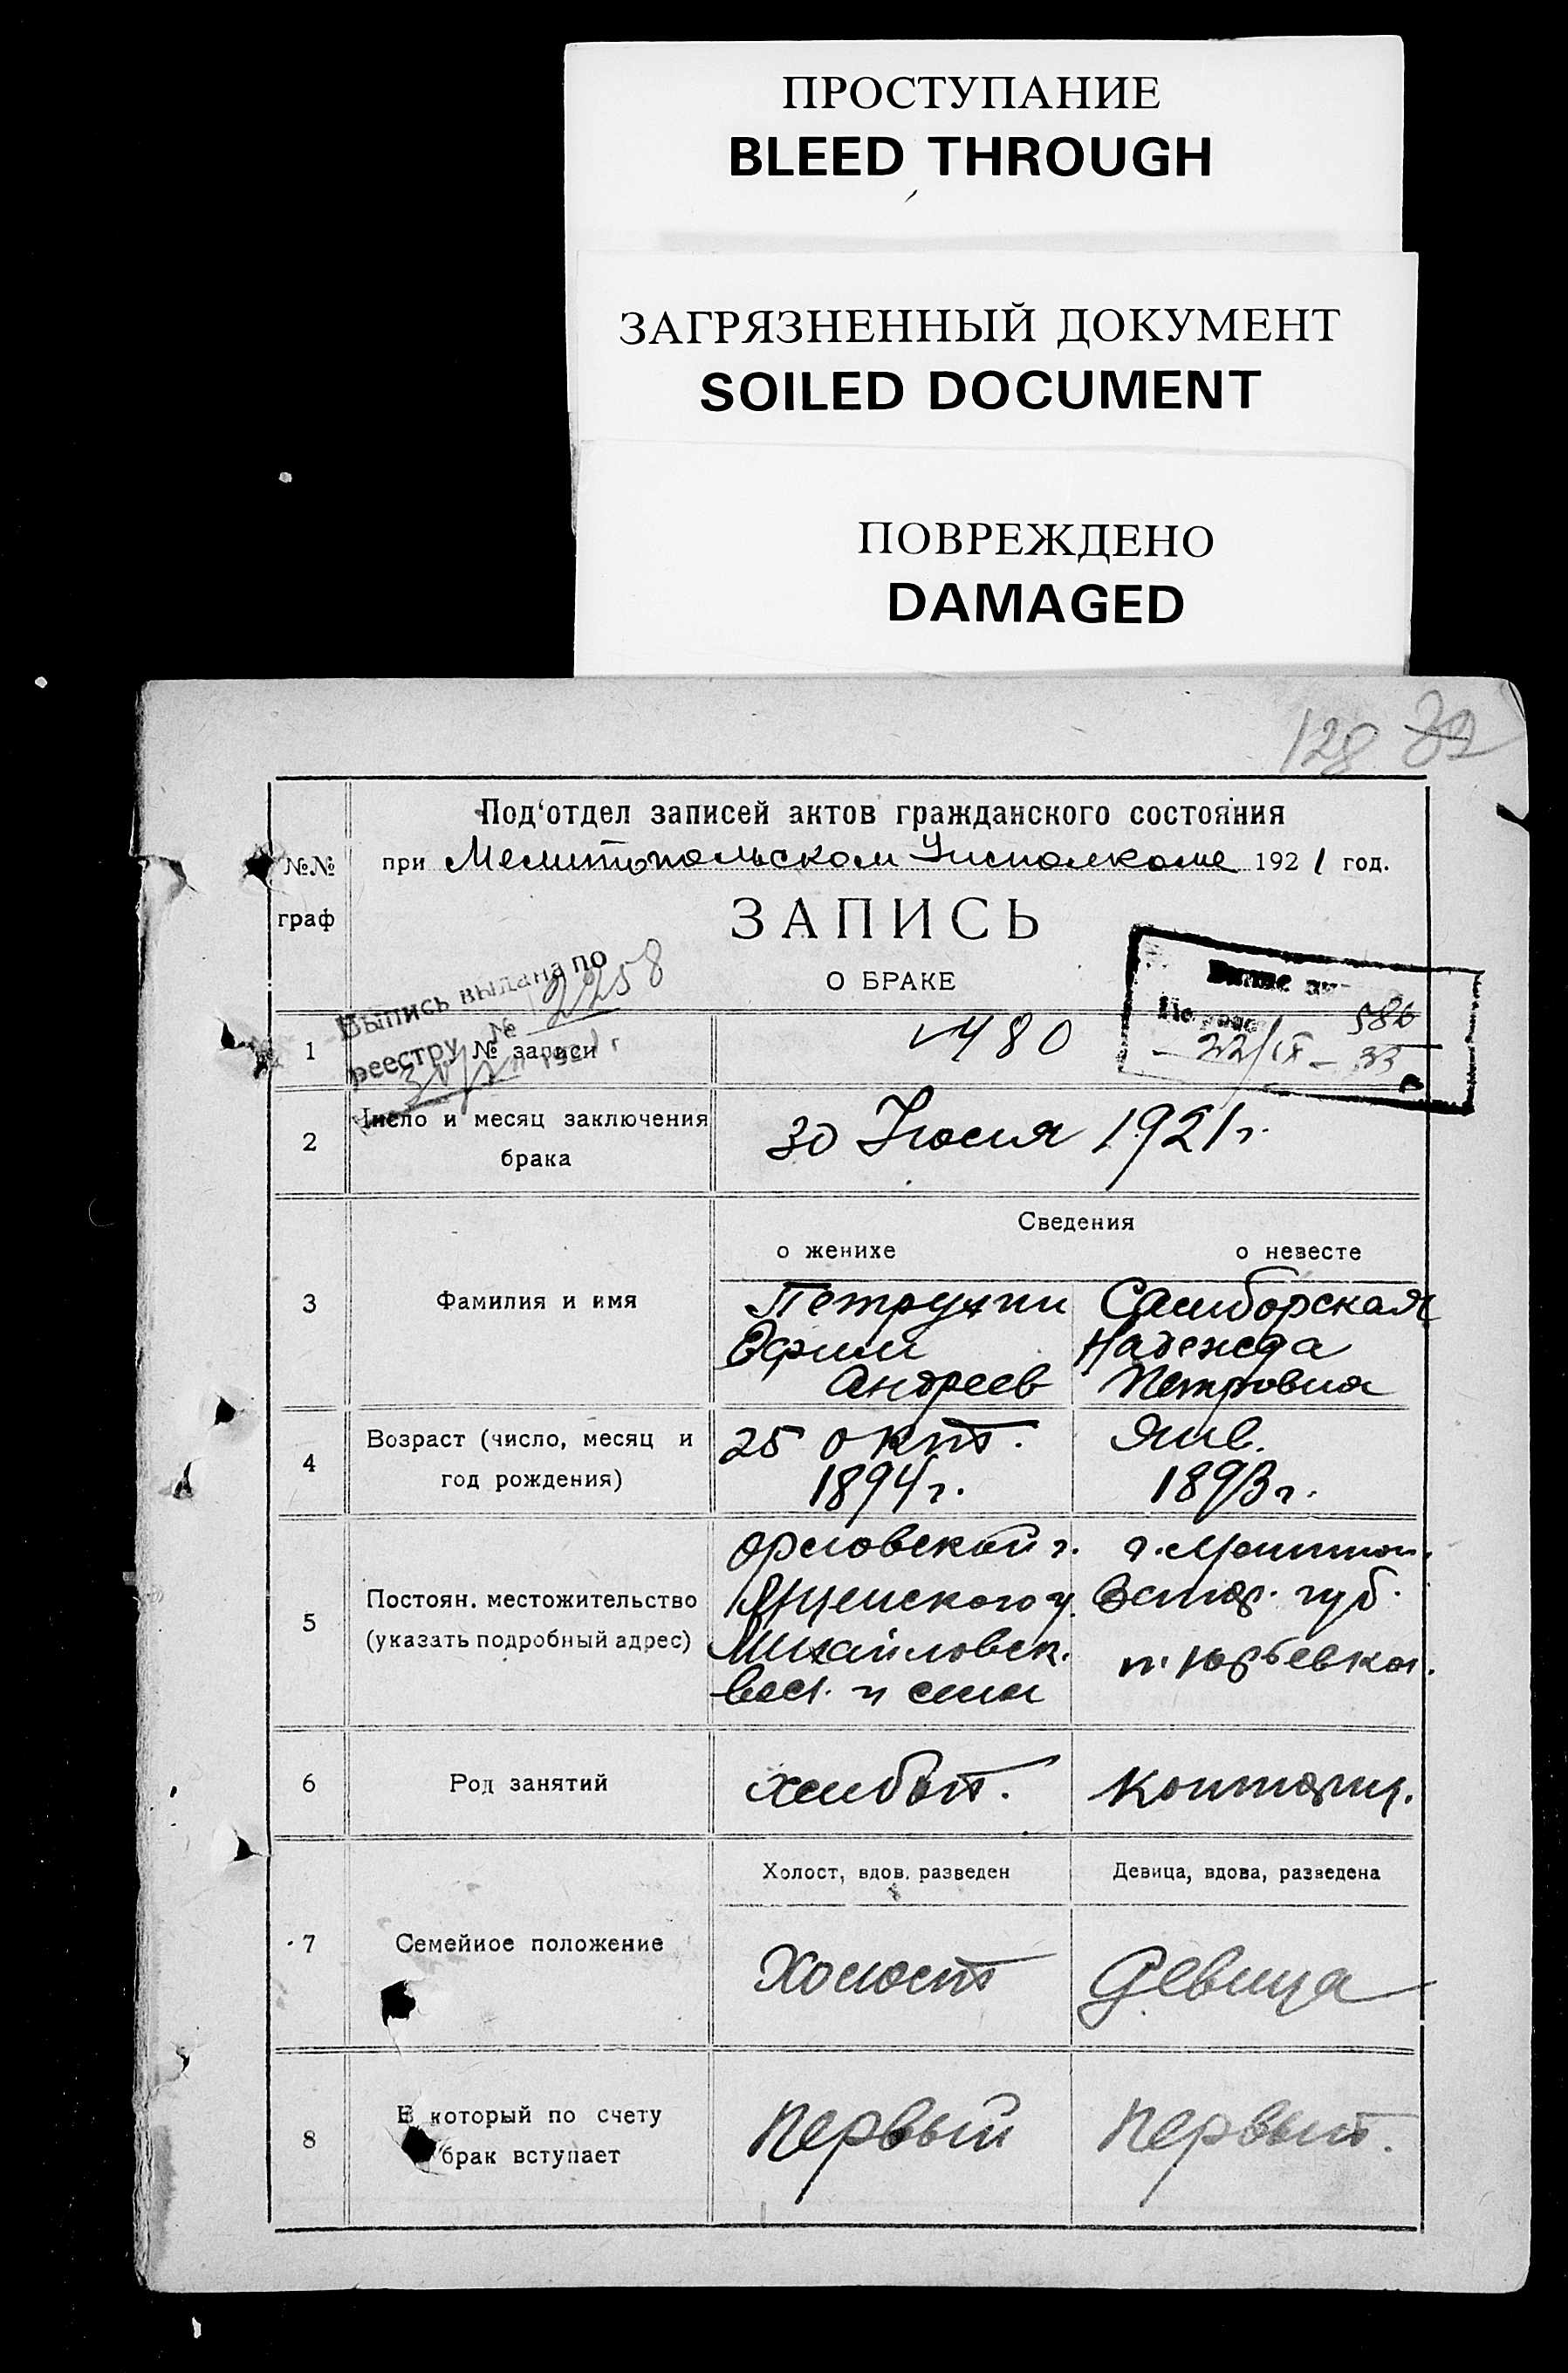 ПРОСТУПАНИЕ
BLEED THROUGH
ЗАГРЯЗНЕННЫЙ ДОКУМЕНТ
SOILED DOCUMENT
ПОВРЕЖДЕНО
DAMAGED
128 32
Под'отдел записей актов гражданского состояния
№№ граф
при Мелитопольском Уисполкоме 1921 год.
ЗАПИСЬ
О БРАКЕ
Выпись выдана по
реестру № 2258
586
22/IX - 33
1 № записи 480
2 Число и месяц заключения брака
30 Июля 1921 г.
Сведения
о женихе о невесте
3 Фамилия и имя
Петрухин Самборская
Ефим Надежда
Андреев Петровна
4 Возраст (число, месяц и год рождения)
25 окт. Янв.
1894 г. 1893 г.
5 Постоян. местожительство (указать подробный адрес)
Орловской г. г.
у. губ.
Михайловск.
вол. и села
6 Род занятий
хлебоп. конторщ.
Холост, вдов. разведен Девица, вдова, разведена
7 Семейное положение
Холост Девица
8 В который по счету брак вступает
Первый Первый.